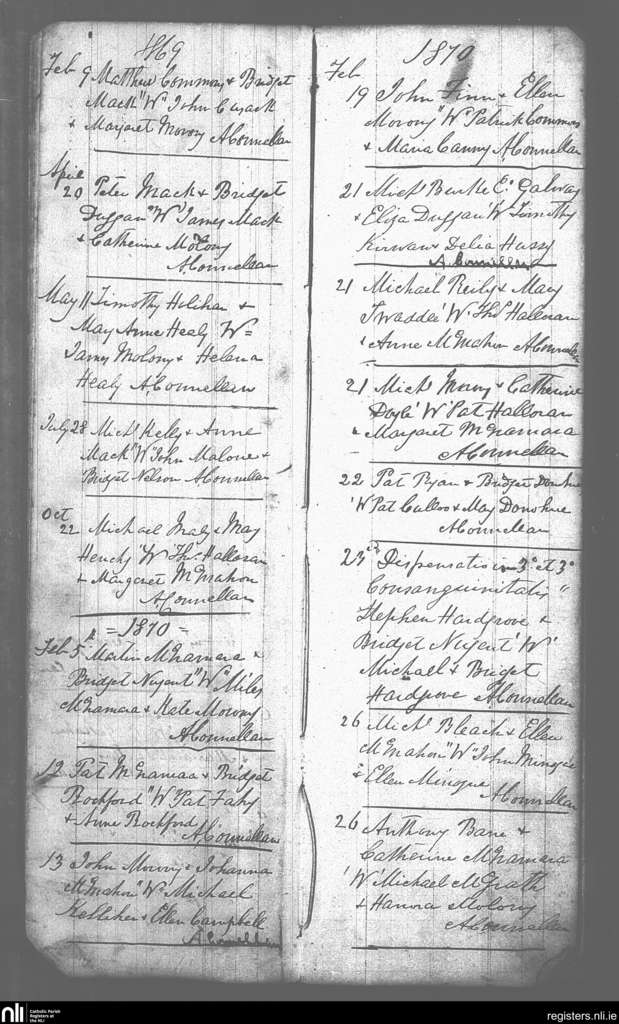 1869
Feb 9 Matthew Commons & Bridget
Mack "W" John Cusack
& Margaret Morony AConnellan
April
20 Peter Mack & Bridget
Duggan "W" James Mack
& Catherine Molony
AConnellan
May 11 Timothy Holihan &
Mary Anne Healy W=
James Molony & Helena
Healy AConnellan
July 28 Michl Kelly & Anne
Mack "W" John Malone &
Bridget Nelson AConnellan
Oct
22 Michael Healy & May
Henchy "W" Ths Halloran
& Margaret McMahon
AConnellan
= 1870 =
Feb 5 Martin McNamara &
Bridget Nugent "W" Miles
McNamara & Kate Morony
AConnellan
12 Pat McNamaa & Bridget
Rochford "W" Pat Fahy
& Anne Rochford AConnellan
13 John Morony & Johanna
McMahon "W" Michael
Kelliher & Ellen Campbell
AConnellan
1870
Feb
19 John Finn & Ellen
Morony "W" Patrick Commons
& Maria Canny AConnellan
21 Michl Burke Co Galway
& Eliza Duggan "W" Timothy
Kirwan & Delia Hussy
A.Connellan
21 Michael Reily & Mary
Twaddle "W" Ths Halloran
& Anne McMahon AConnellan
21 Michl Morony & Catherine
Doyle "W" Pat Halloran
& Margaret McNamara
AConnellan
22 Pat Ryan & Bridget Donohue
"W" Pat Culloo & May Donohue
AConnellan
23 "Dispensatio in 3o et 3o
Consanguinitatis"
Stephen Hardgrove &
Bridget Nugent "W"
Michael & Bridget
Hardgrove AConnellan
26 Michl Bleach & Ellen
McMahon "W" John Minogue
& Ellen Minogue AConnellan
26 Anthony Bane &
Catherine McNamara
"W" Michael McGrath
& Hanora Molony
AConnellan
nli Catholic Parish
Registers at
the NLI
registers.nli.ie